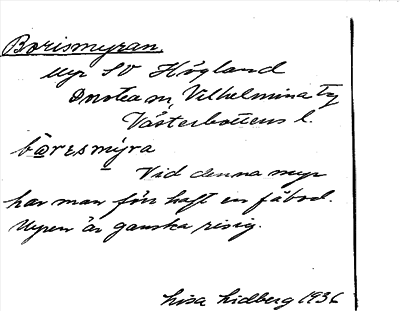 Borismyran.
Myr SV Högland
Vilhelmina tg
Västerbottens l.
bɷresmýra
Vid denna myr
har man förr haft en fäbod.
Myren är ganska risig.
Lisa Lidberg 1936